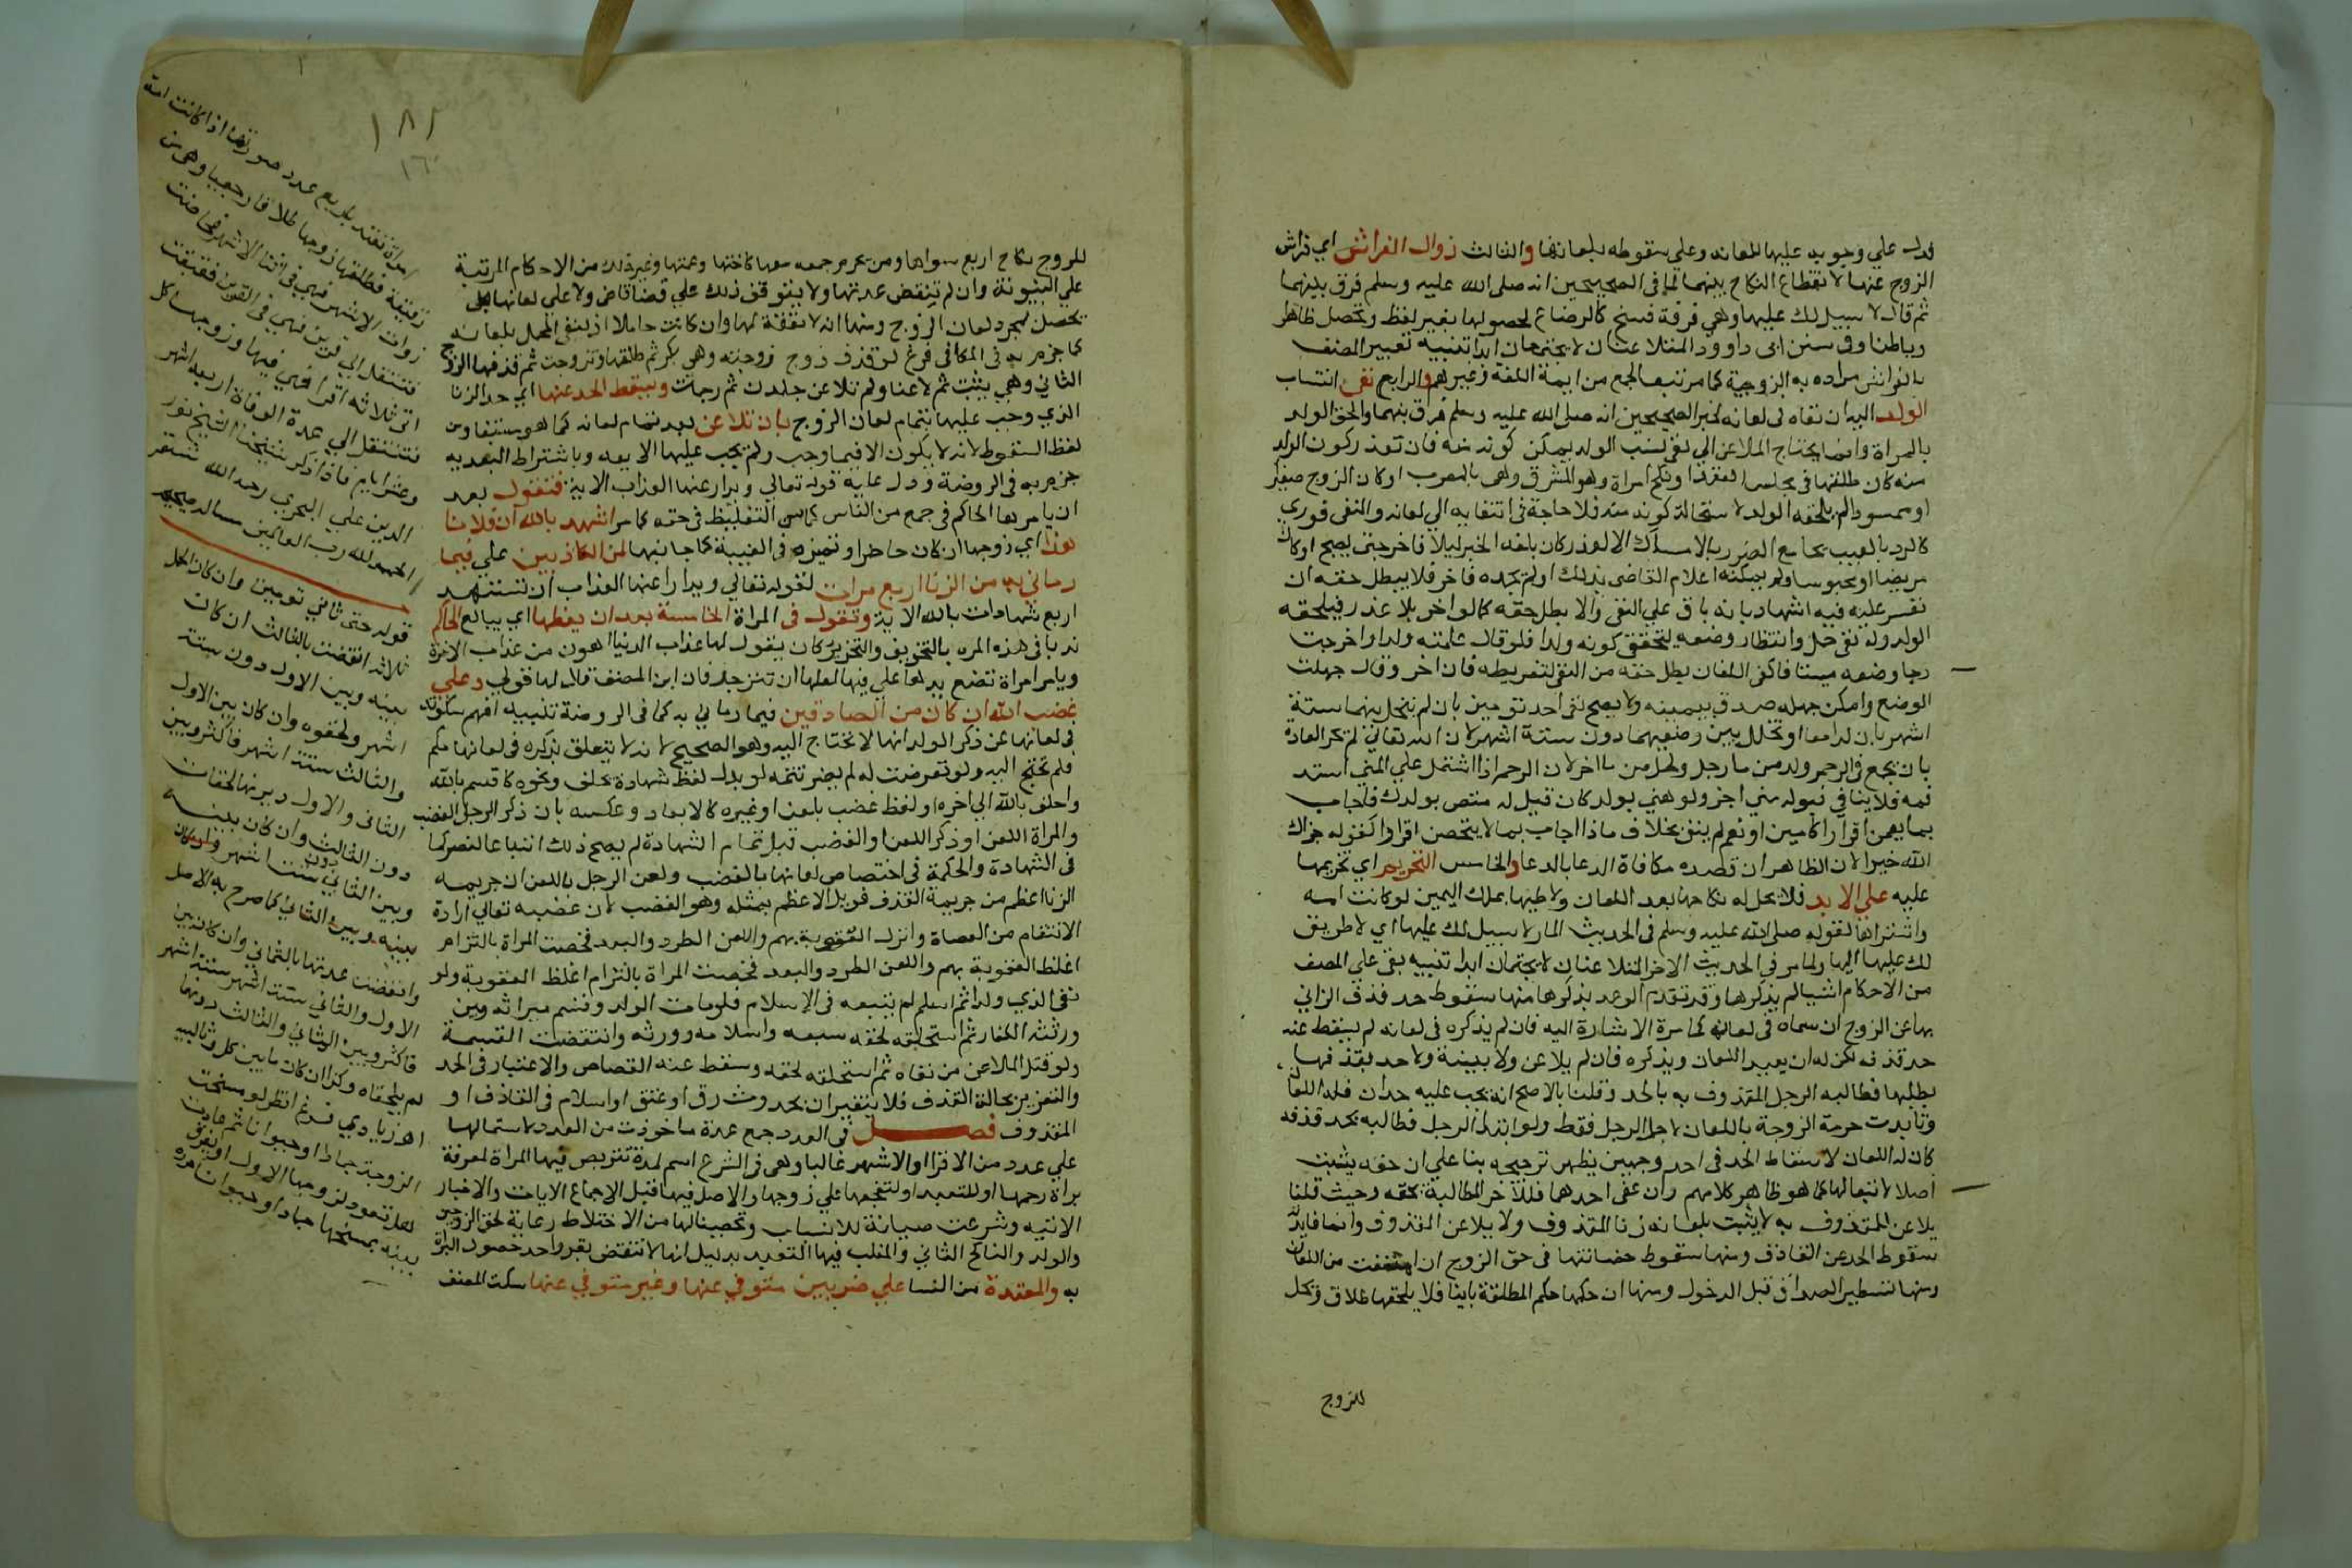 فدل علي وجوبه عليها بلعانه وعلي سقوطه بلعانها والثالث زوال الفراش اي فراش
الزوج عنها لانقطاع النكاح بينهما لما في الصحيحين انه صلي الله عليه وسلم فرق بينهما
ثم قال لا سبيل لك عليها وهي فرقة فسخ كالرضاع لحصولها بغير لفظ وتحصل ظاهرا
وباطنا وفي سنن ابي داوود المتلاعنان لا يجتمعان ابدا تنبيه تعبير المصنف
بالفراش مراده به الزوجية كما مر تبعا لجمع من ايمة اللغة وغيرهم والرابع نفي انتساب
الولد اليه ان نفاه في لعانه لخبر الصحيحين انه صلي الله عليه وسلم فرق بينهما والحق الولد
بالمراة وانما يحتاج الملاعن الي نفي نسب الولد يمكن كونه منه فان تعذر كون الولد
منه كان طلقها في مجلس العقد او نكح امراة وهو بالمشرق وهي بالمغرب او كان الزوج صغيرا
او ممسوحا لم يلحقه الولد لاستحالة كونه منه فلا حاجة في انتفايه الي لعانه والنفي فوري
كالرد بالعيب بجامع الضرر بالامساك الا لعذر كان بلغه الخبر ليلا فاخر حتي يصبح او كان
مريضا او محبوسا ولم يمكنه اعلام القاضي بذلك او لم يجده فاخر فلا يبطل حقه ان
تعسر عليه فيه اشهاد بانه باق علي النفي والا بطل حقه كما لو اخر بلا عذر فيلحقه
الولد وله نفي حمل وانتظار وضعه ليتحقق كونه ولدا فلو قال علمته ولدا واخرت
رجا وضعه ميتا فاكفي اللعان بطل حقه من النفي لتفريطه فان اخر وقال جهلت
الوضع وامكن جهله صدق بيمينه ولا يصح نفي احد توءمين بان لم يتخلل بينهما ستة
اشهر بان ولدا معا او تخلل بين وضعيهما دون ستة اشهر لان الله تعالي لم تجر العادة
بان يجمع في الرحم ولد من ما رجل وولد من ما اخر لان الرحم اذا اشتمل علي المني استد
فمه فلا يتاتي قبوله مني اخر ولو هني بولد كان قيل له متعت بولدك فاجاب
بما يتضمن اقرارا كامين او نعم لم ينف بخلاف ما اذا اجاب بما لا يتضمن اقرارا كقوله جزاك
الله خيرا لان الظاهر ان قصده مكافاة الدعا بالدعا والخامس التحريم اي تحريمها
عليه علي الابد فلا يحل له نكاحها بعد اللعان ولا وطيها بملك اليمين لو كانت امة
واشتراها لقوله صلي الله عليه وسلم في الحديث المار لا سبيل لك عليها اي لا طريق
لك عليها اليها ولما مر في الحديث الاخر المتلاعنان لا يجتمعان ابدا تنبيه بقي علي المصنف
من الاحكام اشيا لم يذكرها وقد تقدم الوعد بذكرها منها سقوط حد قذف الزاني
بها عن الزوج ان سماه في لعانه كما مرة الاشارة اليه فان لم يذكره في لعانه لم يسقط عنه
حد قذفه لكن له ان يعيد اللعان ويذكره فان لم يلاعن ولا بينة ولا حد بقذفها
بطلبها فطالبه الرجل المقذوف به بالحد وقلنا بالاصح انه يجب عليه حدان فله اللعان
وتابدت حرمة الزوجة باللعان لاجل الرجل فقط ولو ابتدا الرجل فطالبه بحد قذفه
كان له اللعان لاسقاط الحد في احد وجهين يظهر ترجيحه بنا علي ان حقه يثبت
اصلا لا تبعا لها كما هو ظاهر كلامهم وان عفي احدهما فللاخر المطالبة بحقه وحيث قلنا
يلاعن للمقذوف به لا يثبت بلعانه زنا المقذوف ولا يلاعن المقذوف وانما فايدته
سقوط الحد عن القاذف ومنها سقوط حضانتها في حق الزوج ان امتنعت من اللعان
ومنها تشطير الصداق قبل الدخول ومنها ان حكمها حكم المطلقة باينا فلا يلحقها طلاق وتحل
للزوج
١٨٢
للزوج نكاح اربع سواها ومن يحرم جمعه معها كاختها وعمتها وغير ذلك من الاحكام المرتبة
علي البينونة وان لم تنقض عدتها ولا يتوقف ذلك علي قضا قاض ولا علي لعانها بل
تحصل لمجرد لعان الزوج ومنها انه لا نفقة لها وان كانت حاملا اذا نفي الحمل بلعانه
كما جزم به في الكافي فرع لو قذف زوج زوجته وهي بكر ثم طلقها وتزوجت ثم قذفها الزوج
الثاني وهي ثيب ثم لاعنا ولم تلاعن جلدت ثم رجمت ويسقط الحد عنها اي حد الزنا
الذي وجب عليها بتمام لعان الزوج بان تلاعن بعد تمام لعانه كما هو مستفاد من
لفظ السقوط لانه لا يكون الا فيما وجب ولم يجب عليها الا بعه وباشتراط البعديه
جزم به في الروضة ودل عليه قوله تعالي ويدرا عنها العذاب الاية فتقول بعد
ان يامرها الحاكم في جمع من الناس كما سن التغليظ في حقه كما مر اشهد بالله ان فلانا
هذا اي زوجها ان كان حاضرا وتميزه في الغيبة كما جا بنها لمن الكاذبين علي فيما
رماني به من الزنا اربع مرات لقوله تعالي ويدرا عنها العذاب ان تشهد
اربع شهادات بالله الاية وتقول في المراة الخامسة بعد ان يعظها اي يبالغ الحاكم
ندبا في هذه المره بالتخويف والتحذير كان يقول لها عذاب الدنيا اهون من عذاب الاخرة
ويامر امراة تضع يدها علي فيها لعلها ان تنزجر فان ابت المصنف قال لها قولي وعلي
غضب الله ان كان من الصادقين فيما رماني به كما في الروضة تنبيه افهم سكوته
في لعانها عن ذكر الولد انها لا تحتاج اليه وهو الصحيح لانه لا يتعلق بذكره في لعانها حكم
فلم تحتج اليه ولو تعرضت له لم يضر تتمه لو بدل لفظ شهادة بحلف ونحوه كاقسم بالله
واحلف بالله الي اخره او لفظ غضب بلعن او غيره كالابعاد وعكسه بان ذكر الرجل الغضب
والمراة اللعن او ذكر اللعن او الغضب قبل تمام الشهادة لم يصح ذلك اتباعا للنص كما
في الشهادة والحكمة في اختصاص لعانها بالغضب ولعن الرجل باللعن ان جريمه
الزنا اعظم من جريمة القذف فقوبل الاعظم بمثله وهو الغضب لان غضبه تعالي ارادة
الانتقام من العصاة وانزال العقوبة بهم واللعن الطرد والبعد فخصت المراة بالتزام
اغلظ العقوبة بهم واللعن الطرد والبعد فخصت المراة بالتزام اغلظ العقوبة ولو
نفي الذي ولدا ثم اسلم لم يتبعه في الاسلام فلو مات الولد وقسم ميراثه وبين
ورثته الكفار ثم استحلقه لحقه سبعه واسلامه وورثه وانتقضت القسمة
ولو قتل الملاعن من نفاه ثم استلحقه لحقه وسقط عنه القصاص والاعتبار في الحد
والتعزير بحالة القذف فلا يتغيران بحدوث رق او عتق او اسلام في القاذف او
المقذوف فصل في العدد جمع عدة ماخوذت من العدد لاشتمالها
علي عدد من الاقرا او الاشهر غالبا وهي في الشرع اسم لمدة تتربص فيها المراة لمعرفة
براة رحمها او للتعبد او لتفجعها علي زوجها والاصل فيها قبل الاجماع الايات والاخبار
الاتيه وشرعت صيانة للانساب وتحصينا لها من الاختلاط رعاية لحق الزوجين
والولد والناكح الثاني والمغلب فيها التعبد بدليل انها لا تنقضي بقرء واحد حصول البراة
به والمعتدة من النسا علي ضربين متوفي عنها وغير متوفي عنها سكت المصنف
امراة تعتد باربع عدد صورتها اذا كانت امة
رقيقة فطلقها زوجها طلاقا رجعيا وهي من
ذوات الاشهر فهي في اثنا الاشهر فحاضت
فتنتقل الي قرين فهي في القرين فعتقت
اتي ثلاثه اقرا فهي فيها وزوجها كل
فتنتقل الي عدة الوفاة اربعه اشهر
وعشر ايام فاذا ذكر شيخنا الشيخ نور
الدين علي البحري رحمه الله
الحمد لله رب العالمين
قوله حتي ثاني توءمين وان كان الحمل
ثلاثه انقضت بالثالث ان كان
بينه وبين الاول دون ستة
اشهر ولحقوه وان كان بين الاول
والثالث ستة اشهر فاكثر وبين
الثاني والاول دونها لحقاه
دون الثالث وان كان بينه
وبين الثاني دون ستة اشهر وان كان
بينه وبين الثاني كما صرح به الاصل
وانقضت عدتها بالثاني وان كان بين
الاول والثاني ستة اشهر
فاكثر وبين الثاني والثالث دونها
لم يلحقاه وكذا ان كان ما بين كل وتاليه
اهـ زيادي فرع انظر لو مسخت
الزوجة جمادا او حيوانا ثم عادت
هل تعود لزوجها الاول او يفرق
بينه بمسخها جمادا او حيوانا